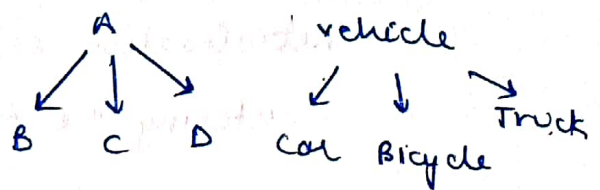 A
B C D
vehicle
Car Bicycle Truck